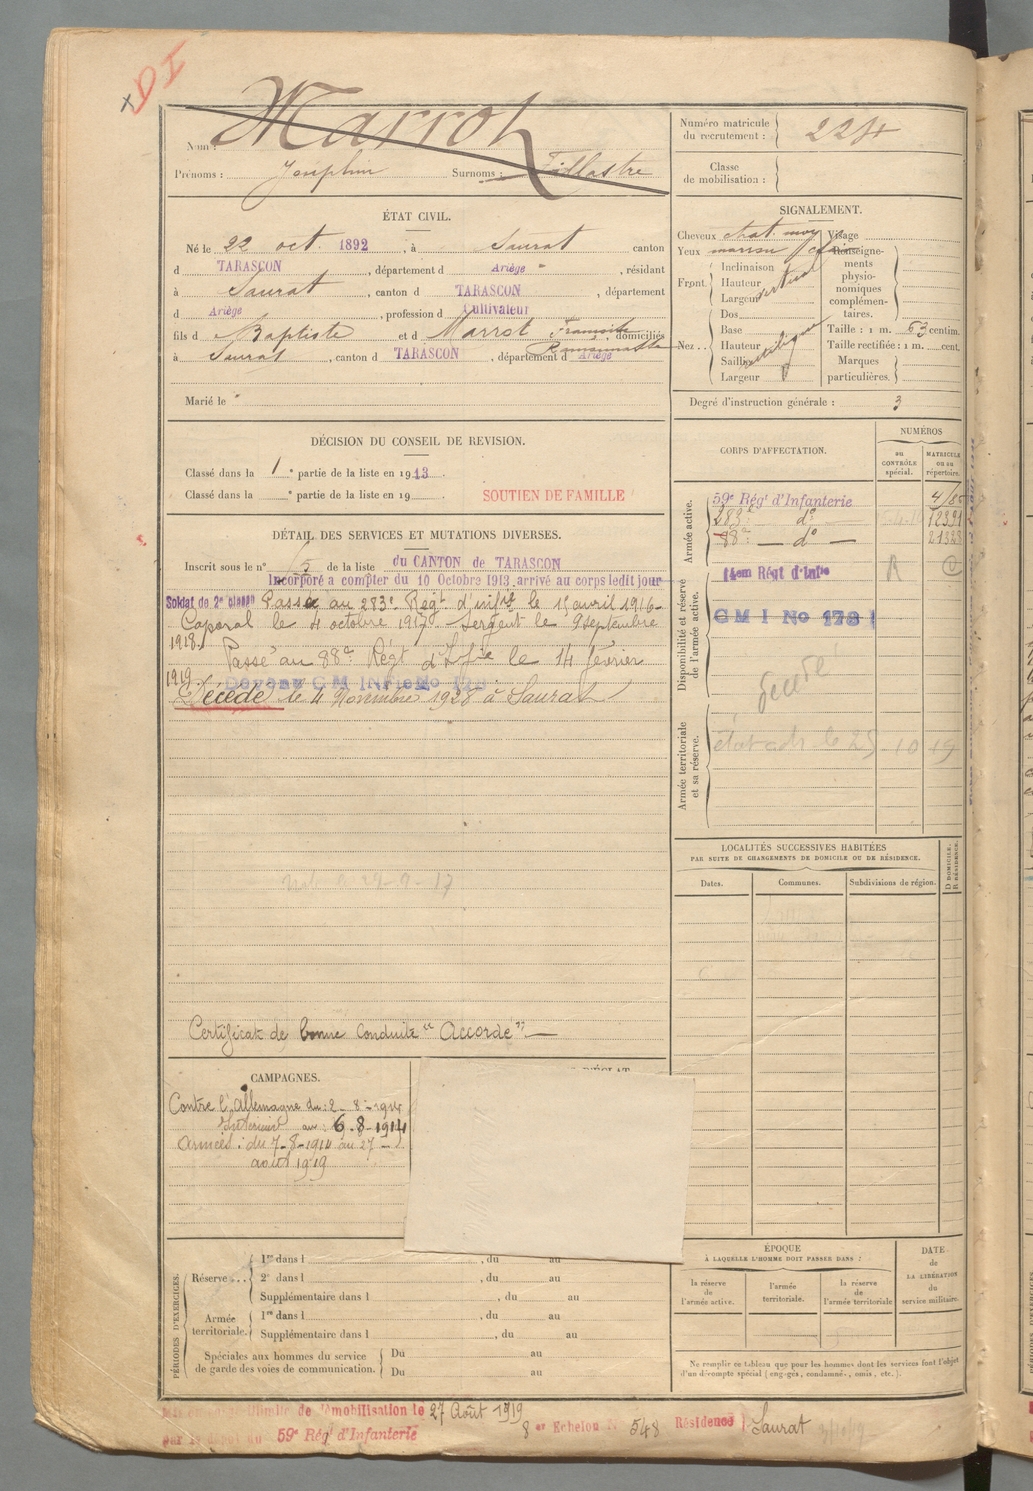 DI
Nom : Marrot
Prénoms : Joséphin Surnoms : Fillastre
Numéro matricule du recrutement : 224
Classe de mobilisation :
ÉTAT CIVIL.
Né le 22 oct. 1892, à Saurat canton
d TARASCON, département d Ariège, résidant
à Saurat, canton d TARASCON, département
d Ariège, profession d Cultivateur
fils d Baptiste et d Marrot Françoise, domiciliés
à Saurat, canton d TARASCON, département d Ariège
Marié le
SIGNALEMENT.
Cheveux chat. moy Visage
Yeux marron clair Renseignements physionomiques complémentaires.
Front. Inclinaison
Hauteur vertical
Largeur
Nez.. Dos
Base
Hauteur
Saillie
Largeur
Taille : 1 m. 63 centim.
Taille rectifiée : 1 m. cent.
Marques particulières.
Degré d'instruction générale : 3
DÉCISION DU CONSEIL DE REVISION.
Classé dans la 1 e partie de la liste en 1913.
Classé dans la e partie de la liste en 19 .
SOUTIEN DE FAMILLE
DÉTAIL DES SERVICES ET MUTATIONS DIVERSES.
Inscrit sous le n° 15 de la liste du CANTON de TARASCON
Incorporé a compter du 10 Octobre 1913. arrivé au corps ledit jour
Soldat de 2e classe Passé au 283e Régt d'infie le 1er avril 1916-
Caporal le 4 octobre 1917. Sergent le 9 septembre
1918.
Passé au 88e Régt d'Infie le 14 février
1919
Devenu CMI
Décédé le 4 Novembre 1928 à Saurat
Certificat de bonne conduite "Accordé"
CORPS D'AFFECTATION.
NUMÉROS
au CONTRÔLE spécial.
MATRICULE ou au répertoire.
Armée active.
59e Régt d'Infanterie
283e - do - 12321
88e - do - 21328
Disponibilité et réserve de l'armée active.
14em Régt d'Infie
CMI No 178
Armée territoriale et sa réserve.
25 10 19
LOCALITÉS SUCCESSIVES HABITÉES
PAR SUITE DE CHANGEMENTS DE DOMICILE OU DE RÉSIDENCE.
Dates. Communes. Subdivisions de région. D DOMICILE. R RÉSIDENCE.
CAMPAGNES.
Contre l'Allemagne du: 2-8-1914
Intérieur au: 6.8-1914
Armées: du 7-8-1914 au 27-
août 1919
PÉRIODES D'EXERCICES.
Réserve...
1re dans l , du au
2e dans l , du au
Supplémentaire dans l , du au
Armée territoriale.
1re dans l , du au
Supplémentaire dans l , du au
Spéciales aux hommes du service de garde des voies de communication.
Du au
Du au
ÉPOQUE
À LAQUELLE L'HOMME DOIT PASSER DANS :
la réserve de l'armée active.
l'armée territoriale.
la réserve de l'armée territoriale
DATE DE LA LIBÉRATION du service militaire.
Ne remplir ce tableau que pour les hommes dont les services font l'objet
d'un décompte spécial (engagés, condamnés, omis, etc.).
démobilisation le 27 Août 1919
par le dépôt du 59e Régt d'Infanterie
8 er Echelon No 548 Résidence Saurat